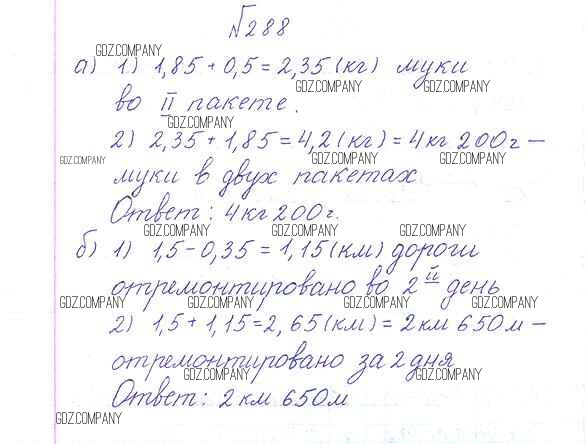 №288
GDZ.COMPANY
а) 1) 1,85 + 0,5 = 2,35 (кг) муки
GDZ.COMPANY GDZ.COMPANY
во II пакете.
GDZ.COMPANY
2) 2,35 + 1,85 = 4,2 (кг) = 4 кг 200 г –
GDZ.COMPANY GDZ.COMPANY GDZ.COMPANY
муки в двух пакетах
Ответ: 4 кг 200 г.
GDZ.COMPANY GDZ.COMPANY GDZ.COMPANY
б) 1) 1,5 - 0,35 = 1,15 (км) дороги
отремонтировано во 2й день
GDZ.COMPANY GDZ.COMPANY GDZ.COMPANY GDZ.COMPANY
2) 1,5 + 1,15 = 2,65 (км) = 2 км 650 м –
отремонтировано за 2 дня
GDZ.COMPANY GDZ.COMPANY
Ответ: 2 км 650 м
GDZ.COMPANY